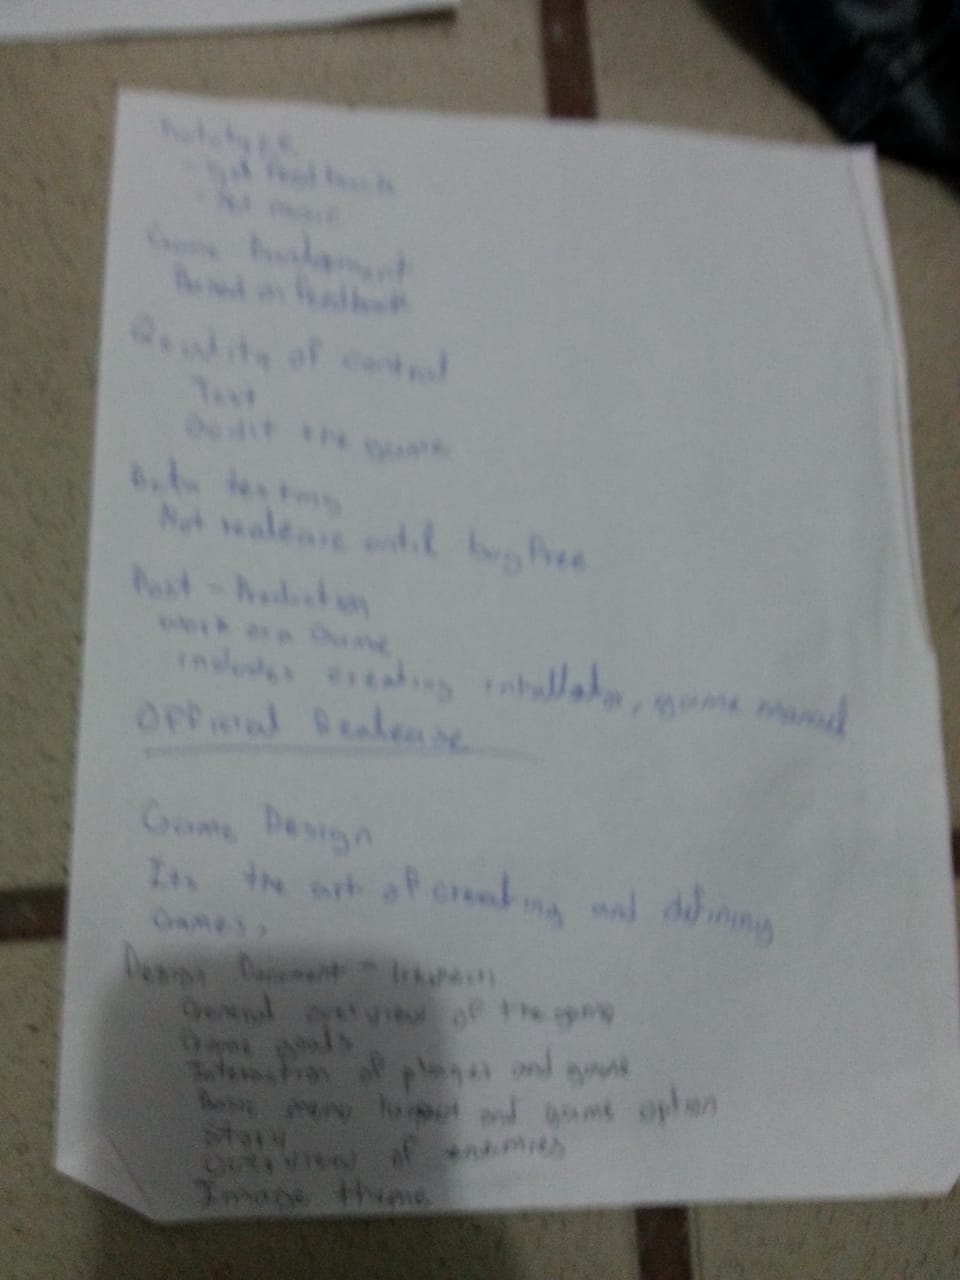 Prototype
Get feedback
Game Development
Based on feedback
Quality of control
Test
Audit the game
Beta testing
Not realease until bug free
Post - Production
Work on a Game
includes creating , game manual
Official Realease
Game Design
Its the art of creating and defining
Games.
Design Document -
General overview of the game
Game goals
Interaction of player and game
Basic menu and game option
Story
Overview of enemies
Image theme